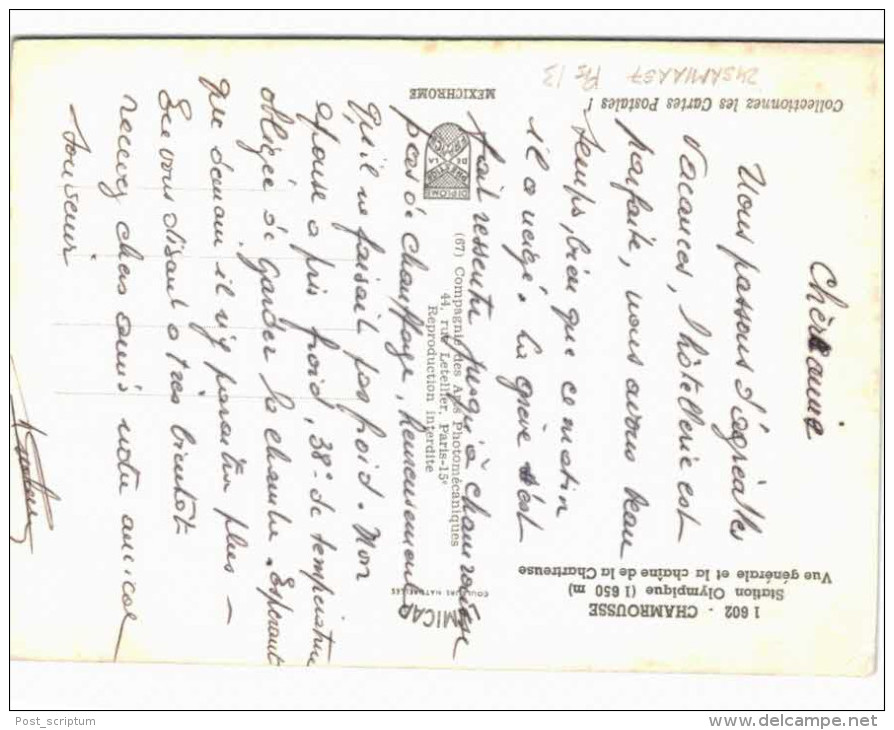 Chère amie
Nous passons d'agréables
vacances, l'hôtellerie est
parfaite, nous avons beau
temps, bien que ce matin
il a neigé. La grève s'est
fait ressentir jusqu'à Chamrousse
pas de chauffage, heureusement
qu'il ne faisait pas froid. Mon
épouse a pris froid, 38° de température
obligée de garder la chambre. Espérant
que demain il n'y paraîtra plus –
En vous disant à très bientôt
recevez chers amis notre amical
souvenir
1 602 - CHAMROUSSE
Station Olympique (1 650 m)
Vue générale et la chaîne de la Chartreuse
Collectionnez les Cartes Postales !
MEXICHROME
DIPLOME
PRESTIGE
DE LA
FRANCE
(67) Compagnie des Arts Photomécaniques
44, rue Letellier, Paris-15e
Reproduction interdite
COULEURS NATURELLES
Post_scriptum
www.delcampe.net